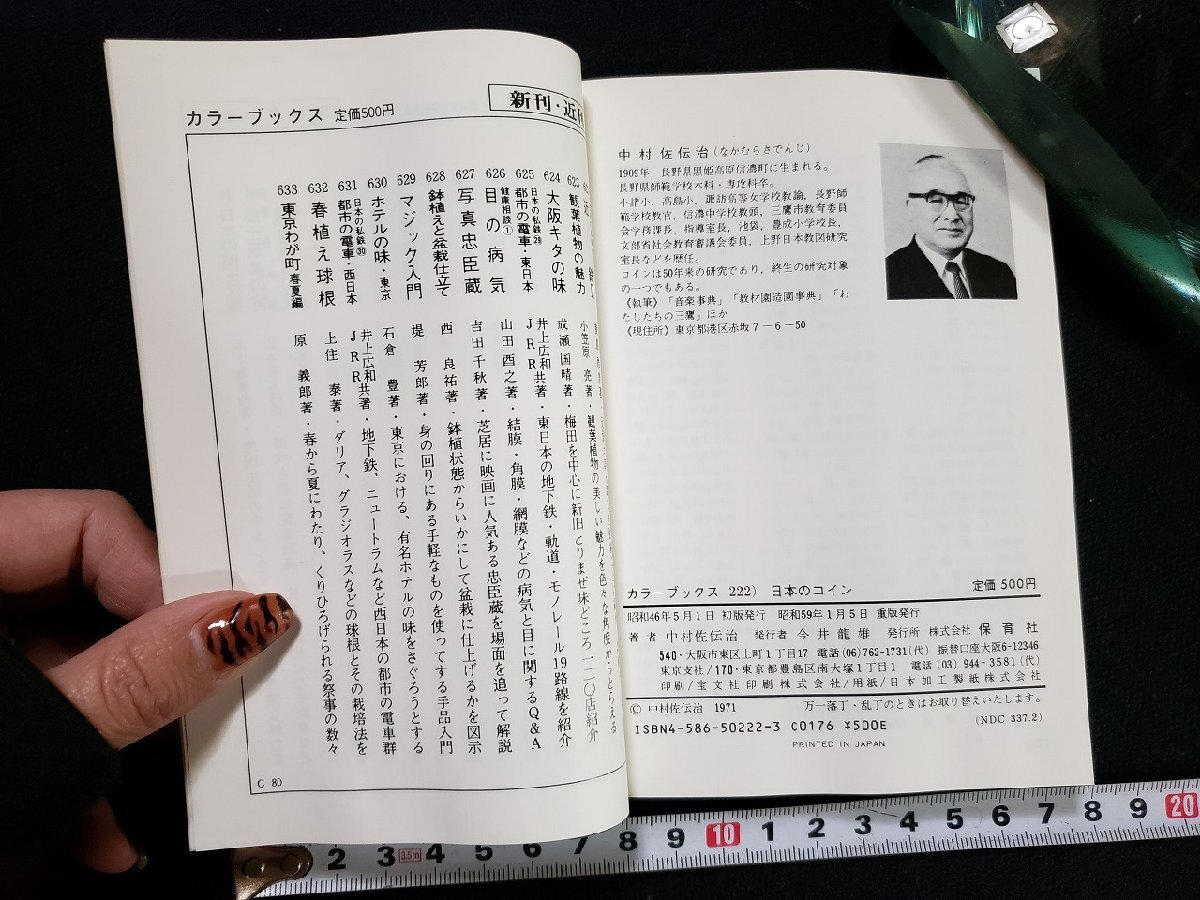 カラーブックス 定価500円
新刊・近
観葉植物の魅力
小笠原 亮著・観葉植物の美しい魅力を色々な角度からとらえる
624 大阪キタの味
成瀬国晴著・梅田を中心に新旧とりまぜ味どころ一二〇店紹介
625 日本の私鉄㉙ 都市の電車・東日本
井上広和 JRR 共著・東日本の地下鉄・軌道・モノレール19路線を紹介
626 健康相談① 目の病気
山田酉之著・結膜・角膜・網膜などの病気と目に関するQ&A
627 写真忠臣蔵
吉田千秋著・芝居に映画に人気ある忠臣蔵を場面を追って解説
628 鉢植えと盆栽仕立て
西 良祐著・鉢植状態からいかにして盆栽に仕上げるかを図示
629 マジック入門
堤 芳郎著・身の回りにある手軽なものを使ってする手品入門
630 ホテルの味・東京
石倉 豊著・東京における、有名ホテルの味をさぐろうとする
631 日本の私鉄㉚ 都市の電車・西日本
井上広和 JRR 共著・地下鉄、ニュートラムなど西日本の都市の電車群
632 春植え球根
上住 泰著・ダリア、グラジオラスなどの球根とその栽培法を
633 東京わが町 春夏編
原 義郎著・春から夏にわたり、くりひろげられる祭事の数々
C 80
中村佐伝治(なかむらさでんじ)
1909年 長野県黒姫高原信濃町に生まれる。
長野県師範学校本科・専攻科卒。
小諸小、高島小、諏訪高等女学校教諭、長野師
範学校教官、信濃中学校教頭、三鷹市教育委員
会学務課長、指導室長、池袋、豊成小学校長、
文部省社会教育審議会委員、上野日本教図研究
室長などを歴任。
コインは50年来の研究であり、終生の研究対象
の一つでもある。
《執筆》「音楽事典」「教材園造園事典」「わ
たしたちの三鷹」ほか
《現住所》東京都港区赤坂7-6-50
カラーブックス 222) 日本のコイン 定価 500円
昭和46年5月1日 初版発行 昭和59年1月5日 重版発行
著者 中村佐伝治 発行者 今井龍雄 発行所 株式会社 保育社
540・大阪市東区上町1丁目17 電話(06)762-1731(代) 振替口座大阪6-12346
東京支社/170・東京都豊島区南大塚1丁目1 電話(03)944-3581(代)
印刷/宝文社印刷株式会社/用紙/日本加工製紙株式会社
© 中村佐伝治 1971 万一落丁・乱丁のときはお取り替えいたします。
ISBN4-586-50222-3 C0176 ¥500E (NDC 337.2)
PRINTED IN JAPAN
2 3 3.5㎝ 4 5 6 7 8 9 10 1 2 3 4 5 6 7 8 9 20